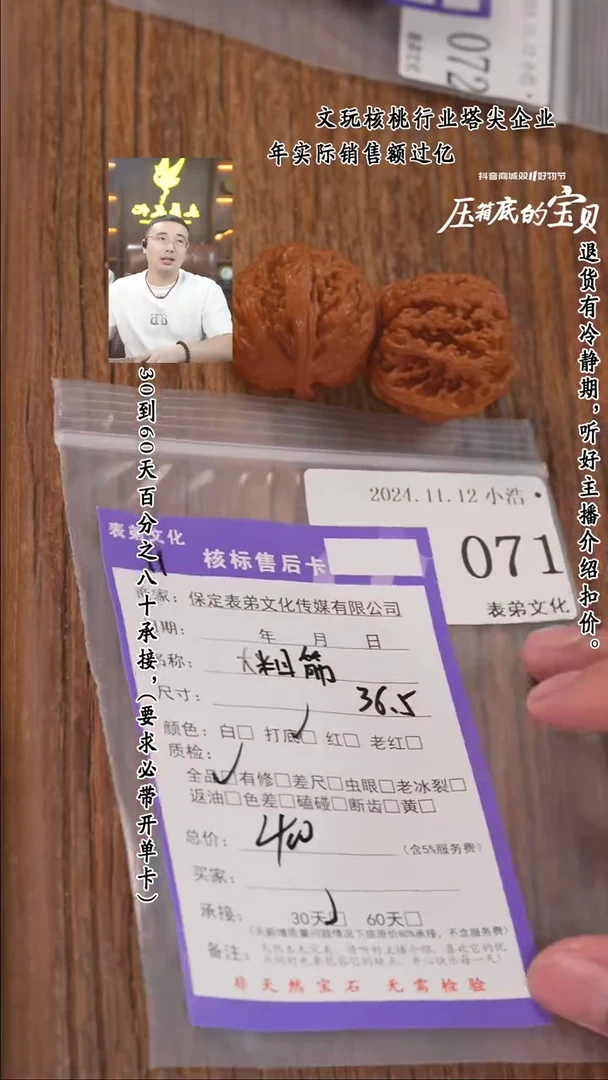 072
文玩核桃行业塔尖企业
年实际销售额过亿
抖音商城双11好物节
压箱底的宝贝
退货有冷静期，听好主播介绍扣价。
30到60天百分之八十承接，（要求必带开单卡）
2024.11.12 小浩
071
表弟文化
表弟文化
核标售后卡
商家：保定表弟文化传媒有限公司
日期： 年 月 日
名称： 粗筋
尺寸： 36.5
颜色：白□ 打底□ 红□ 老红□
质检：
全品□有修□差尺□虫眼□老冰裂□
返油□色差□磕碰□断齿□黄□
总价： 400 （含5%服务费）
买家：
承接： 30天□ 60天□
（无新增质量问题情况下按原价80%承接，不含服务费）
备注：天然本无完美，请听好主播介绍，喜欢它的优
点同时也要包容它的缺点，开心快乐每一天！
非天然宝石 无需检验